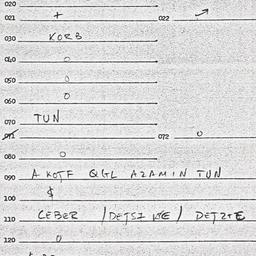 020
021 + 022
030 KORB
040 0
050 0
060 0
070 TUN
071 072 0
080 0
090 A KOTF QGL AZAMIN TUN
100 $
110 CEBER /DETSI KE/ DETZTE
120 0